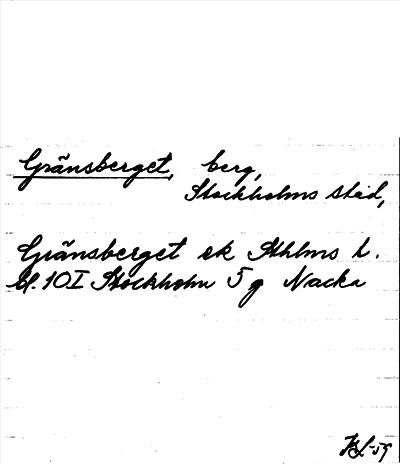 Gränsberget, berg,
Stockholms stad,
Gränsberget ek Sthlms l.
bl. 10I Stockholm 5 g Nacka
-59